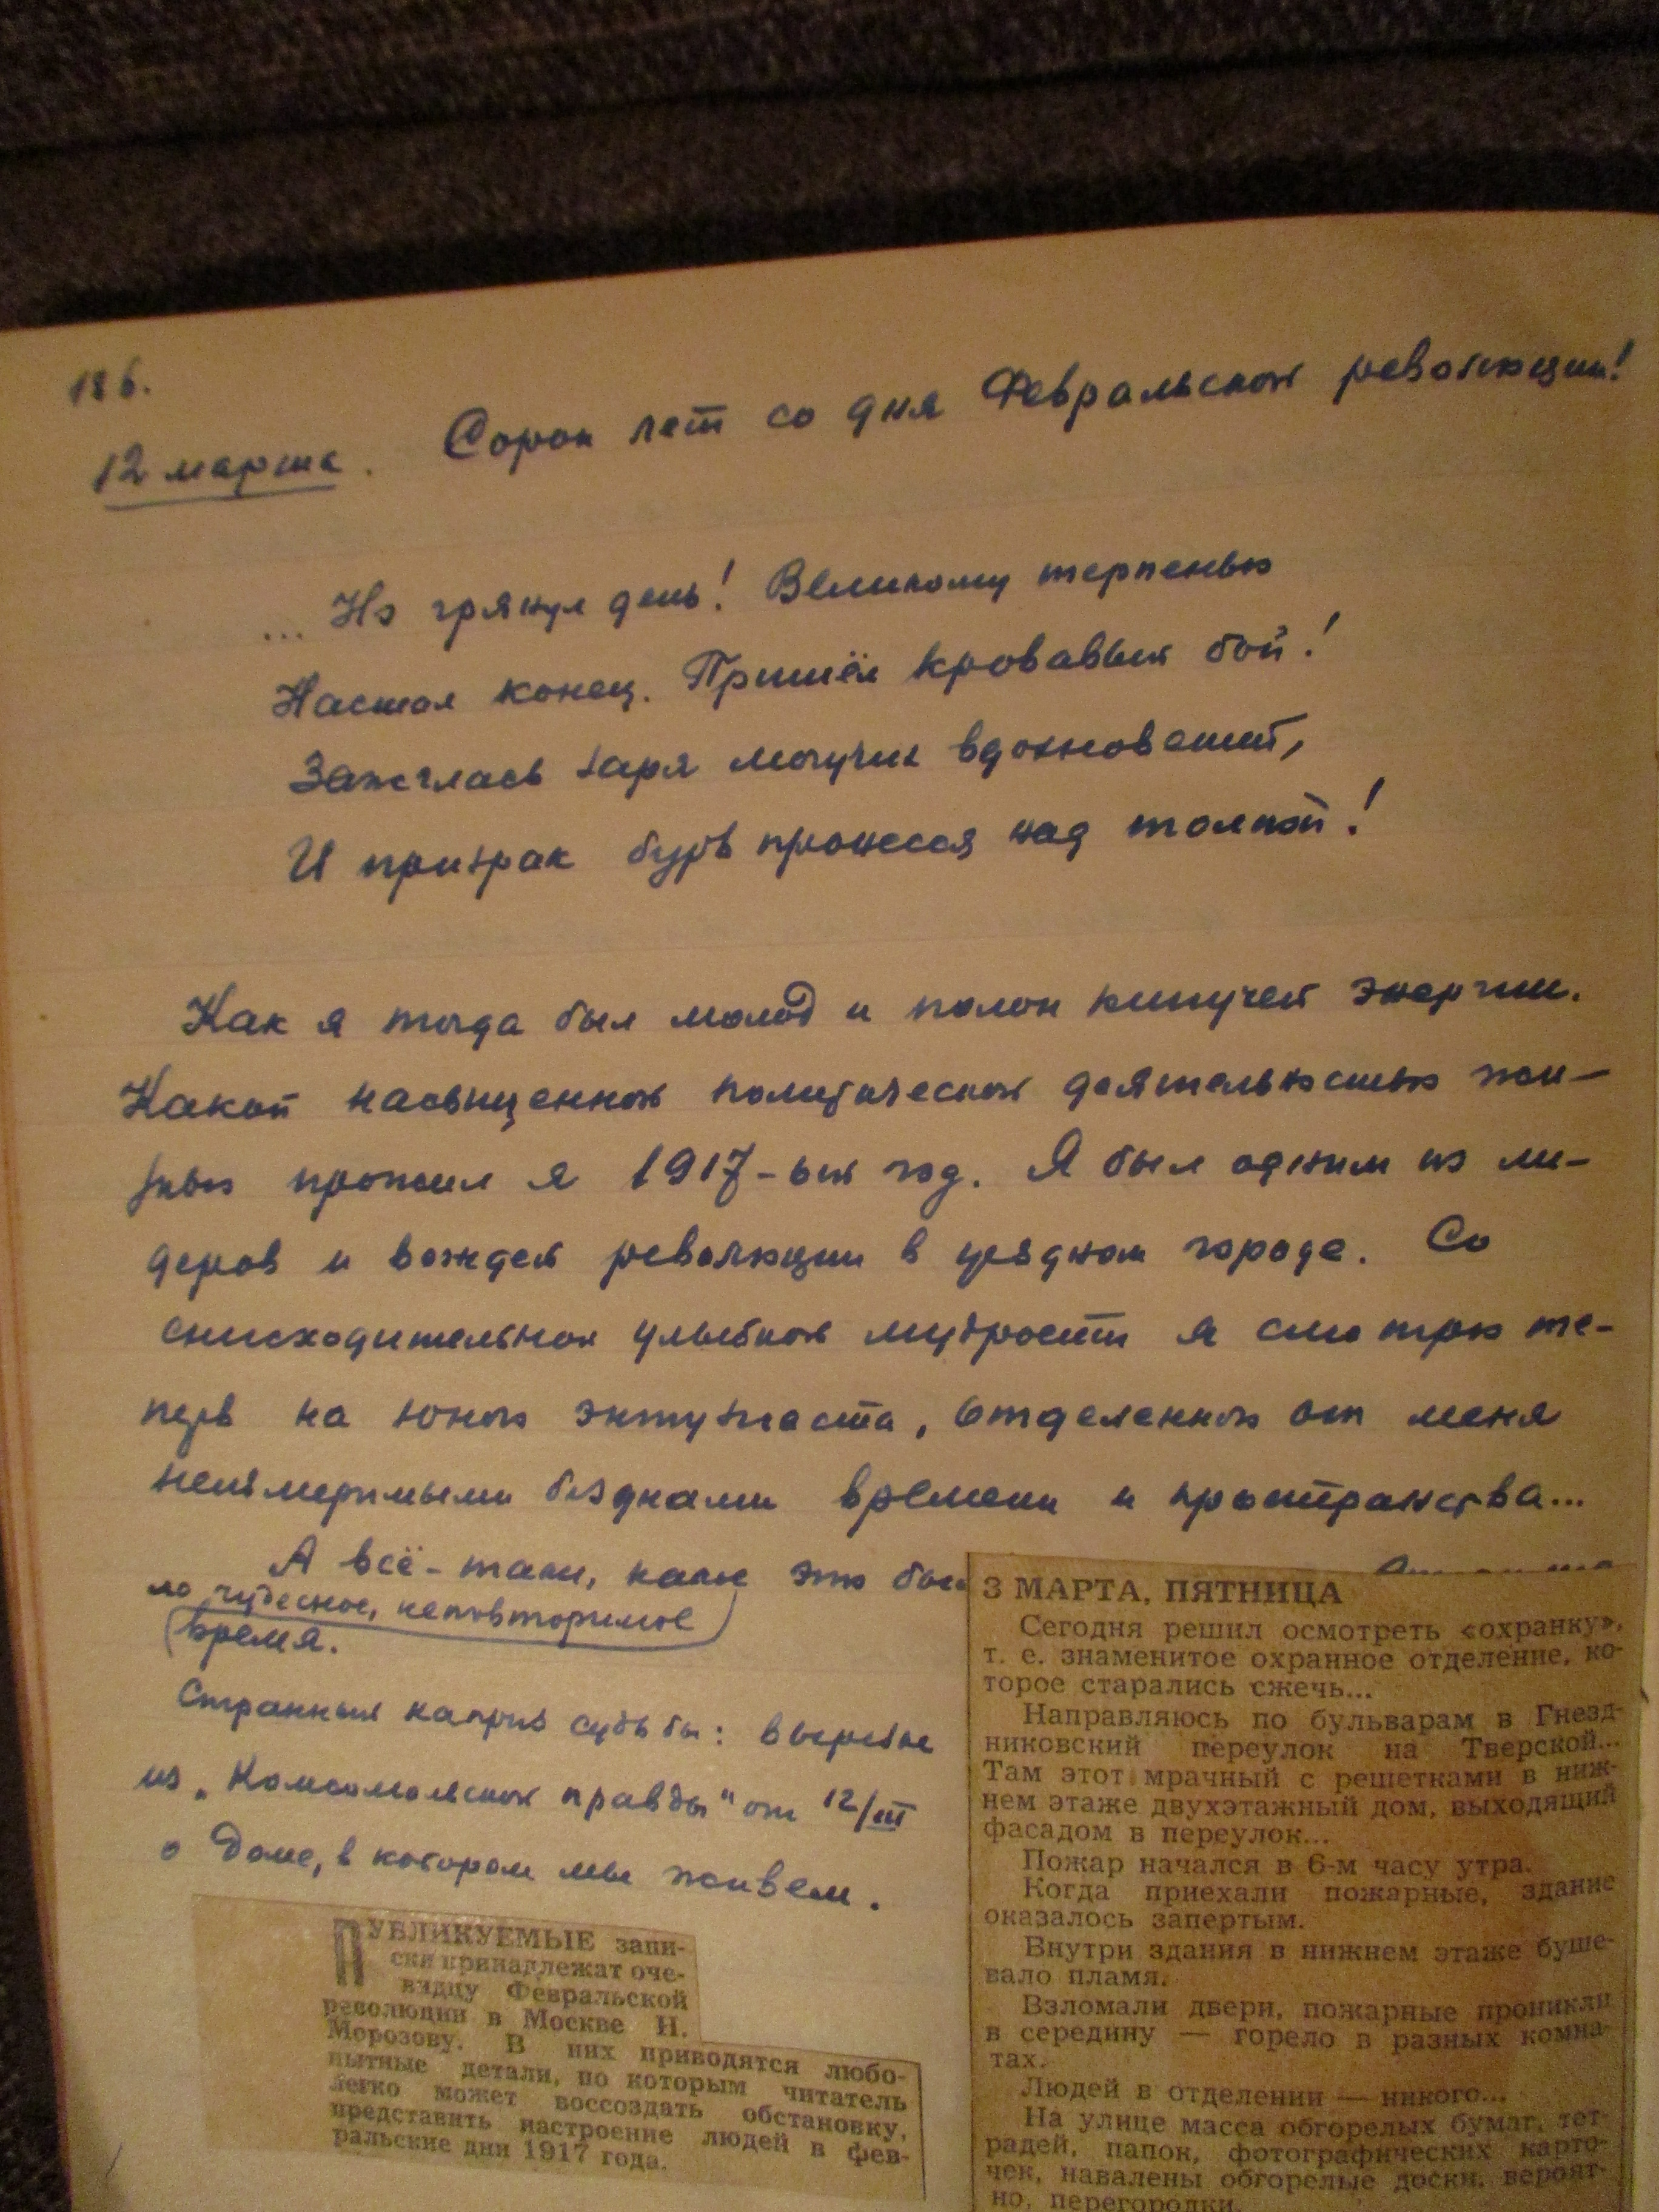 186.
12 марта. Сорок лет со дня Февральской революции!
... Но грянул день! Великому терпенью
Настал конец. Пришёл кровавый бой!
Зажглась заря могучих вдохновений,
И призрак бурь пронесся над толпой!
Как я тогда был молод и полон кипучей энергии.
Какой насыщенной политической деятельностью жи-
знью прожил я 1917-ый год. Я был одним из ли-
деров и вождей революции в уездном городе. Со
снисходительной улыбкой мудрости я смотрю те-
перь на юного энтузиаста, отделенного от меня
неизмеримыми безднами времени и пространства...
А всё-таки, какое это бы
ло чудесное, неповторимое
время.
Странный каприз судьбы: вырезка
из „Комсомольской правды" от 12/III
о доме, в котором мы живем.
ПУБЛИКУЕМЫЕ запи-
ски принадлежат оче-
видцу Февральской
революции в Москве Н.
Морозову. В них приводятся любо-
пытные детали, по которым читатель
легко может воссоздать обстановку,
представить настроение людей в фев-
ральские дни 1917 года.
3 МАРТА, ПЯТНИЦА
Сегодня решил осмотреть «охранку»,
т. е. знаменитое охранное отделение, ко-
торое старались сжечь...
Направляюсь по бульварам в Гнезд-
никовский переулок на Тверской...
Там этот мрачный с решетками в ниж-
нем этаже двухэтажный дом, выходящий
фасадом в переулок...
Пожар начался в 6-м часу утра.
Когда приехали пожарные, здание
оказалось запертым.
Внутри здания в нижнем этаже буше-
вало пламя.
Взломали двери, пожарные проникли
в середину — горело в разных комна-
тах.
Людей в отделении — никого...
На улице масса обгорелых бумаг, тет-
радей, папок, фотографических карто-
чек, навалены обгорелые доски, вероят-
но, перегородки.